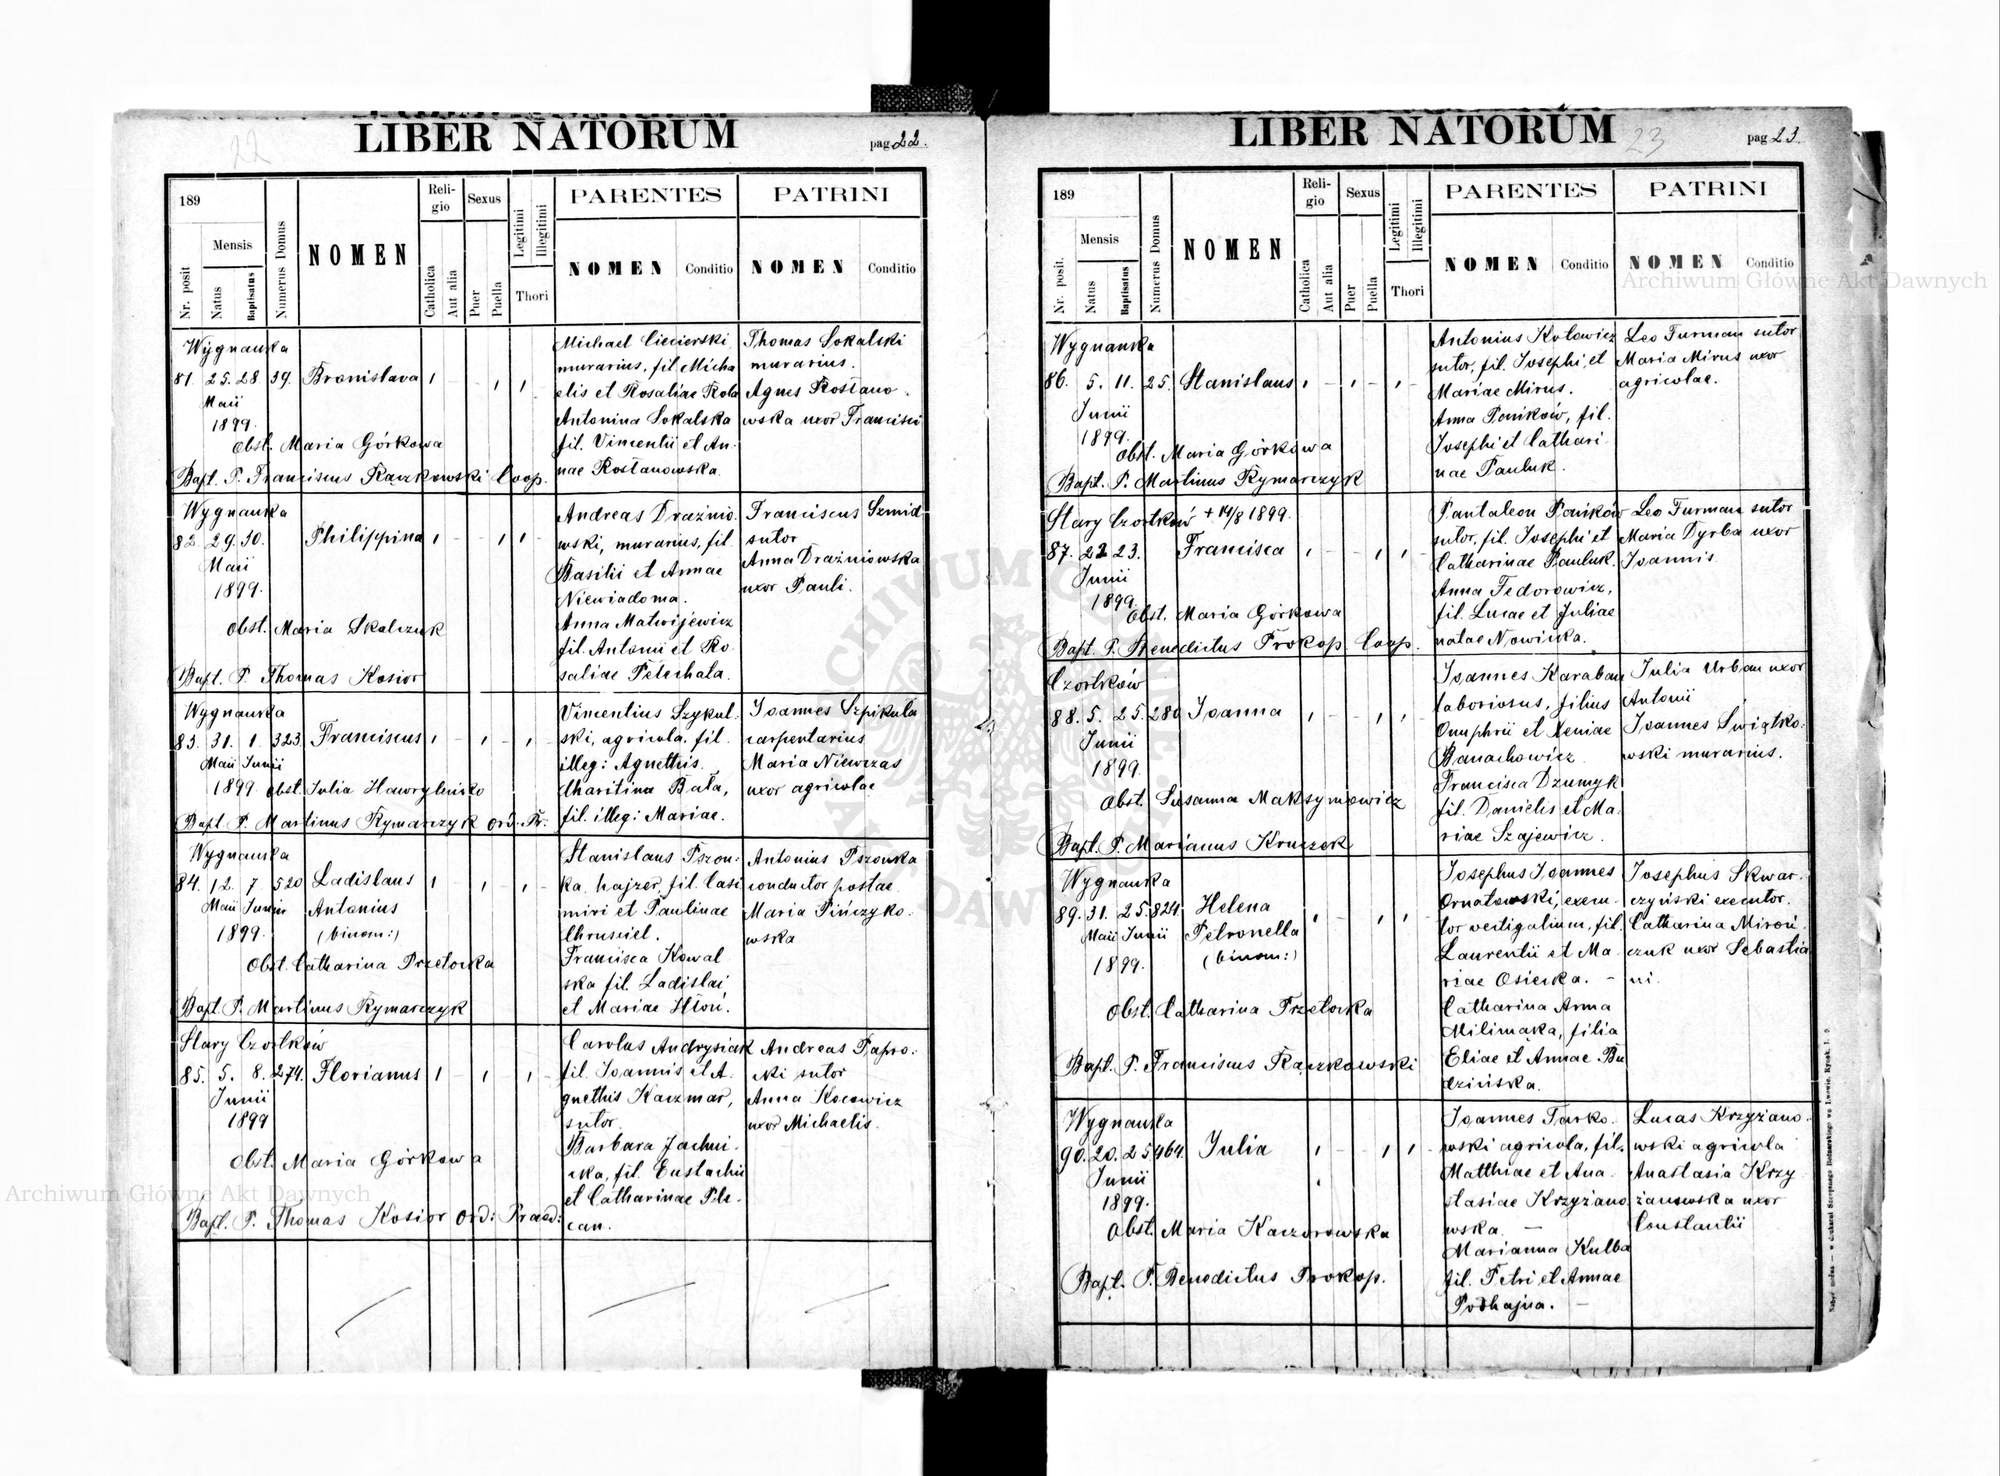 22
LIBER NATORUM
pag 22.
189
Nr. posit
Mensis
Natus
Baptisatus
Numerus Domus
NOMEN
Reli-
gio
Catholica
Aut alia
Sexus
Puer
Puella
Legitimi
Illegitimi
Thori
PARENTES
NOMEN
Conditio
PATRINI
NOMEN
Conditio
Wygnanka
81. 25. 28. 39. Bronislava 1 - - 1 1
Maii
1899.
Obst. Maria Górkowa
Bapt. P. Franciscus Rączkowski Coop.
Michael Ciecierski,
murarius, fil. Micha
elis et Rosaliae Rola
Antonina Sokalska
fil. Vincentii et An-
nae Rostanowska.
Thomas Sokalski
murarius.
Agnes Rostano-
wska uxor Francisci
Wygnanka
82. 29. 30. Philippina 1 - - 1 1
Maii
1899.
Obst. Maria Skalczuk
Bapt. P. Thomas Kosior
Andreas Drażnio-
wski, murarius, fil.
Basilii et Annae
Niewiadoma.
Anna Matwijewicz
fil. Antonii et Ro-
saliae Pelechata.
Franciscus Szmid
sutor
Anna Drażniowska
uxor Pauli.
Wygnanka
83. 31. 1. 323. Franciscus 1 - 1 - 1 -
Maii Junii
1899. Obst. Julia Hawryleńko
Bapt. P. Martinus Rymarczyk Ord. Pr.
Vincentius Szykul-
ski, agricola, fil.
illeg: Agnethis.
Charitina Bała,
fil. illeg: Mariae.
Joannes Szpikuła
carpentarius
Maria Niewczas
uxor agricolae
Wygnanka
84. 12. 7. 520 Ladislaus 1 - 1 - 1 -
Maii Junii Antonius
1899. (binom:)
Obst. Catharina Przetocka
Bapt. P. Martinus Rymarczyk
Stanislaus Pszon-
ka, hajzer, fil. Casi
miri et Paulinae
Chruściel.
Francisca Kowal
ska fil. Ladislai,
et Mariae Hłoń.
Antonius Pszonka
conductor postae
Maria Pińczyko-
wska
Stary Czortków
85. 5. 8. 274. Florianus 1 - 1 - 1 -
Junii
1899
Obst. Maria Górkowa
Bapt. P. Thomas Kosior Ord: Praed:
Carolus Andrysiak
fil. Joannis et A-
gnethis Kaczmar,
sutor.
Barbara Jachni-
cka, fil. Eustachii
et Catharinae Ple-
can.
Andreas Papro-
cki sutor
Anna Kocowicz
uxor Michaelis.
LIBER NATORUM
23
pag 23.
189
Nr. posit.
Mensis
Natus
Baptisatus
Numerus Domus
NOMEN
Reli-
gio
Catholica
Aut alia
Sexus
Puer
Puella
Legitimi
Illegitimi
Thori
PARENTES
NOMEN
Conditio
PATRINI
NOMEN
Conditio
Wygnanka
86. 5. 11. 25. Stanislaus 1 - 1 - 1 -
Junii
1899.
Obst. Maria Górkowa
Bapt. P. Martinus Rymarczyk
Antonius Kotowicz
sutor, fil. Josephi et
Mariae Mirus.
Anna Poników, fil.
Josephi et Cathari
nae Pauluk.
Leo Furman sutor
Maria Mirus uxor
agricolae.
Stary Czortków + 14/8 1899.
87. 22 23. Francisca 1 - - 1 1 -
Junii
1899.
Obst. Maria Górkowa
Bapt. P. Benedictus Prokop Coop.
Pantaleon Poników
sutor, fil. Josephi et
Catharinae Pauluk.
Anna Fedorowicz,
fil. Lucae et Juliae
natae Nowicka.
Leo Furman sutor
Maria Dyrba uxor
Joannis.
Czortków
88. 5. 25. 280 Joanna 1 - - 1 1 -
Junii
1899.
Obst. Susanna Maksymowicz
Bapt. P. Marianus Kruczek
Joannes Karaban
laboriosus, filius
Onuphrii et Xeniae
Banachowicz
Francisca Dzumyk
fil. Danielis et Ma-
riae Szajewicz.
Julia Urban uxor
Antonii
Joannes Swiątko-
wski murarius.
Wygnanka
89. 31. 25. 824. Helena 1 - - 1 1 -
Maii Junii Petronella
1899. (binom:)
Obst. Catharina Przetocka
Bapt. P. Franciscus Rączkowski
Josephus Joannes
Ornatowski, execu-
tor vectigalium, fil.
Laurentii et Ma-
riae Osiecka. -
Catharina Anna
Milimąka, filia
Eliae et Annae Bu
dzińska.
Josephus Skwar-
czyński executor.
Catharina Miroń-
czuk uxor Sebastia
ni.
Wygnanka
90. 20. 25. 464. Julia 1 - - 1 1
Junii
1899.
Obst. Maria Kaczorowska
Bapt. P. Benedictus Prokop.
Joannes Tarko-
wski agricola, fil.
Matthiae et Ana-
stasiae Krzyżano
wska. -
Marianna Kulba
fil. Petri et Annae
Podhajna. -
Lucas Krzyżano-
wski agricola
Anastasia Krzy
żanowska uxor
Constantii
Archiwum Główne Akt Dawnych
Archiwum Główne Akt Dawnych